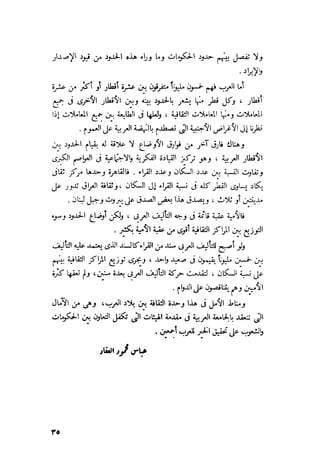 ولا تفصل بينهم حدود الحكومات وما وراء هذه الحدود من قيود الإصدار
والإيراد .
أما العرب فهم خمسون مليونًا متفرقون بين عشرة أقطار أو أكثر من عشرة
أقطار ، وكل قطر منها يشعر بالحدود بينه وبين الأقطار الأخرى فى جميع
المعاملات ومنها المعاملات الثقافية ، ولعلها فى الطليعة بين جميع المعاملات إذا
نظرنا إلى الأغراض الأجنبية التى تصطدم بالنهضة العربية على العموم .
وهناك فارق آخر من فوارق الأوضاع لا علاقة له بقيام الحدود بين
الأقطار العربية ، وهو تركيز القيادة الفكرية والاجتماعية فى العواصم الكبرى
وتفاوت النسبة بين عدد السكان وعدد القراء . فالقاهرة وحدها مركز ثقافى
يكاد يساوى القطر كله فى نسبة القراء إلى السكان ، وثقافة العراق تدور على
مدينتين أو ثلاث ، ويصدق هذا بعض الصدق على بيروت وجبل لبنان .
فالأمية عقبة قائمة فى وجه التأليف العربى ، ولكن أوضاع الحدود وسوء
التوزيع بين المراكز الثقافية أقوى من عقبة الأمية بكثير .
ولو أصبح للتأليف العربى سند من القراء كالسند الذى يعتمد عليه التأليف
بين خمسين مليونًا يقيمون فى صعيد واحد ، ويجرى توزيع المراكز الثقافية بينهم
على نسبة السكان ، لتقدمت حركة التأليف العربى بعدة سنين ، ولم تعقها كثرة
الأميين وهم يتناقصون على الدوام .
ومناط الأمل فى هذا وحدة الثقافة بين بلاد العرب ، وهى من الآمال
التى تنعقد بالجامعة العربية فى مقدمة الهيئات التى تكفل التعاون بين الحكومات
والشعوب على تحقيق الخير للعرب أجمعين .
عباس محمود العقاد
٣٥